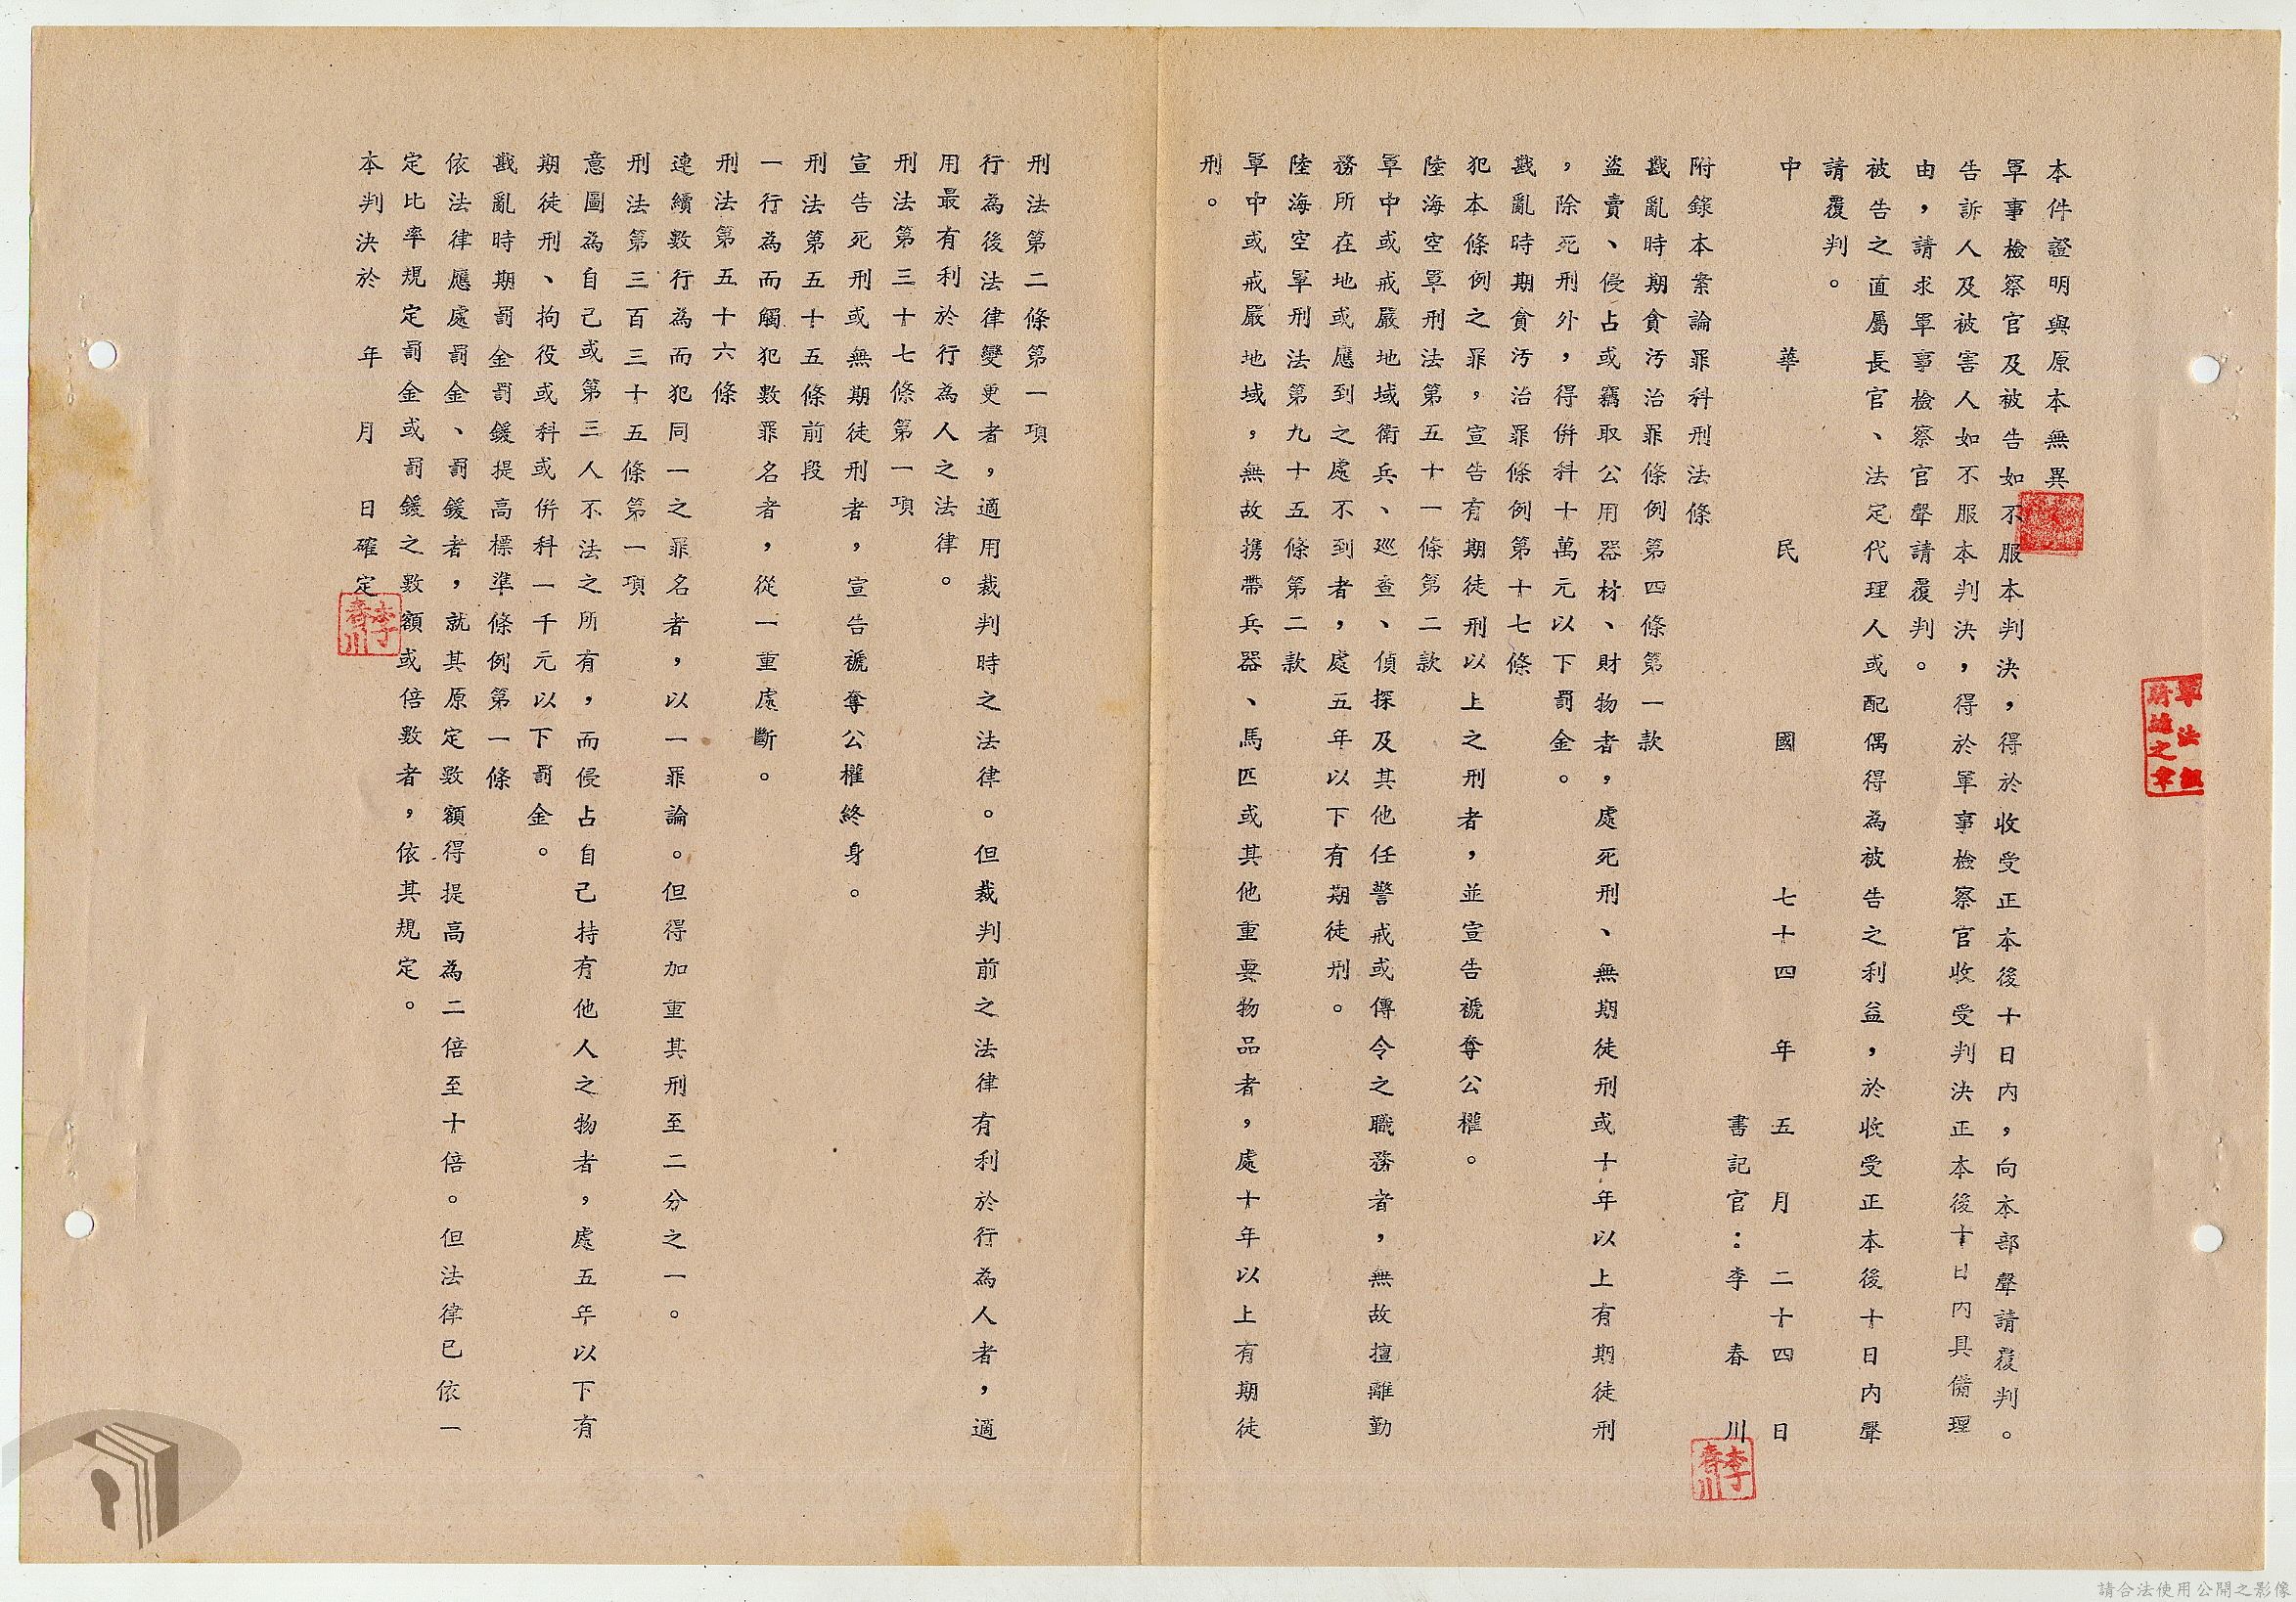 本件證明與原本無異
軍事檢察官及被告如不服本判決，得於收受正本後十日內，向本部聲請覆判。
告訴人及被害人如不服本判決，得於軍事檢察官收受判決正本後十日內具備理
由，請求軍事檢察官聲請覆判。
被告之直屬長官、法定代理人或配偶得為被告之利益，於收受正本後十日內聲
請覆判。
中華民國七十四年五月二十四日
書記官：李春川
李春川
附錄本案論罪科刑法條
戡亂時期貪污治罪條例第四條第一款
盜賣、侵占或竊取公用器材、財物者，處死刑、無期徒刑或十年以上有期徒刑
，除死刑外，得併科十萬元以下罰金。
戡亂時期貪污治罪條例第十七條
犯本條例之罪，宣告有期徒刑以上之刑者，並宣告褫奪公權。
陸海空軍刑法第五十一條第二款
軍中或戒嚴地域衛兵、巡查、偵探及其他任警戒或傳令之職務者，無故擅離勤
務所在地或應到之處不到者，處五年以下有期徒刑。
陸海空軍刑法第九十五條第二款
軍中或戒嚴地域，無故携帶兵器、馬匹或其他重要物品者，處十年以上有期徒
刑。
刑法第二條第一項
行為後法律變更者，適用裁判時之法律。但裁判前之法律有利於行為人者，適
用最有利於行為人之法律。
刑法第三十七條第一項
宣告死刑或無期徒刑者，宣告褫奪公權終身。
刑法第五十五條前段
一行為而觸犯數罪名者，從一重處斷。
刑法第五十六條
連續數行為而犯同一之罪名者，以一罪論。但得加重其刑至二分之一。
刑法第三百三十五條第一項
意圖為自己或第三人不法之所有，而侵占自己持有他人之物者，處五年以下有
期徒刑、拘役或科或併科一千元以下罰金。
戡亂時期罰金罰鍰提高標準條例第一條
依法律應處罰金、罰鍰者，就其原定數額得提高為二倍至十倍。但法律已依一
定比率規定罰金或罰鍰之數額或倍數者，依其規定。
本判決於　年　月　日確定
李春川
請合法使用公開之影像